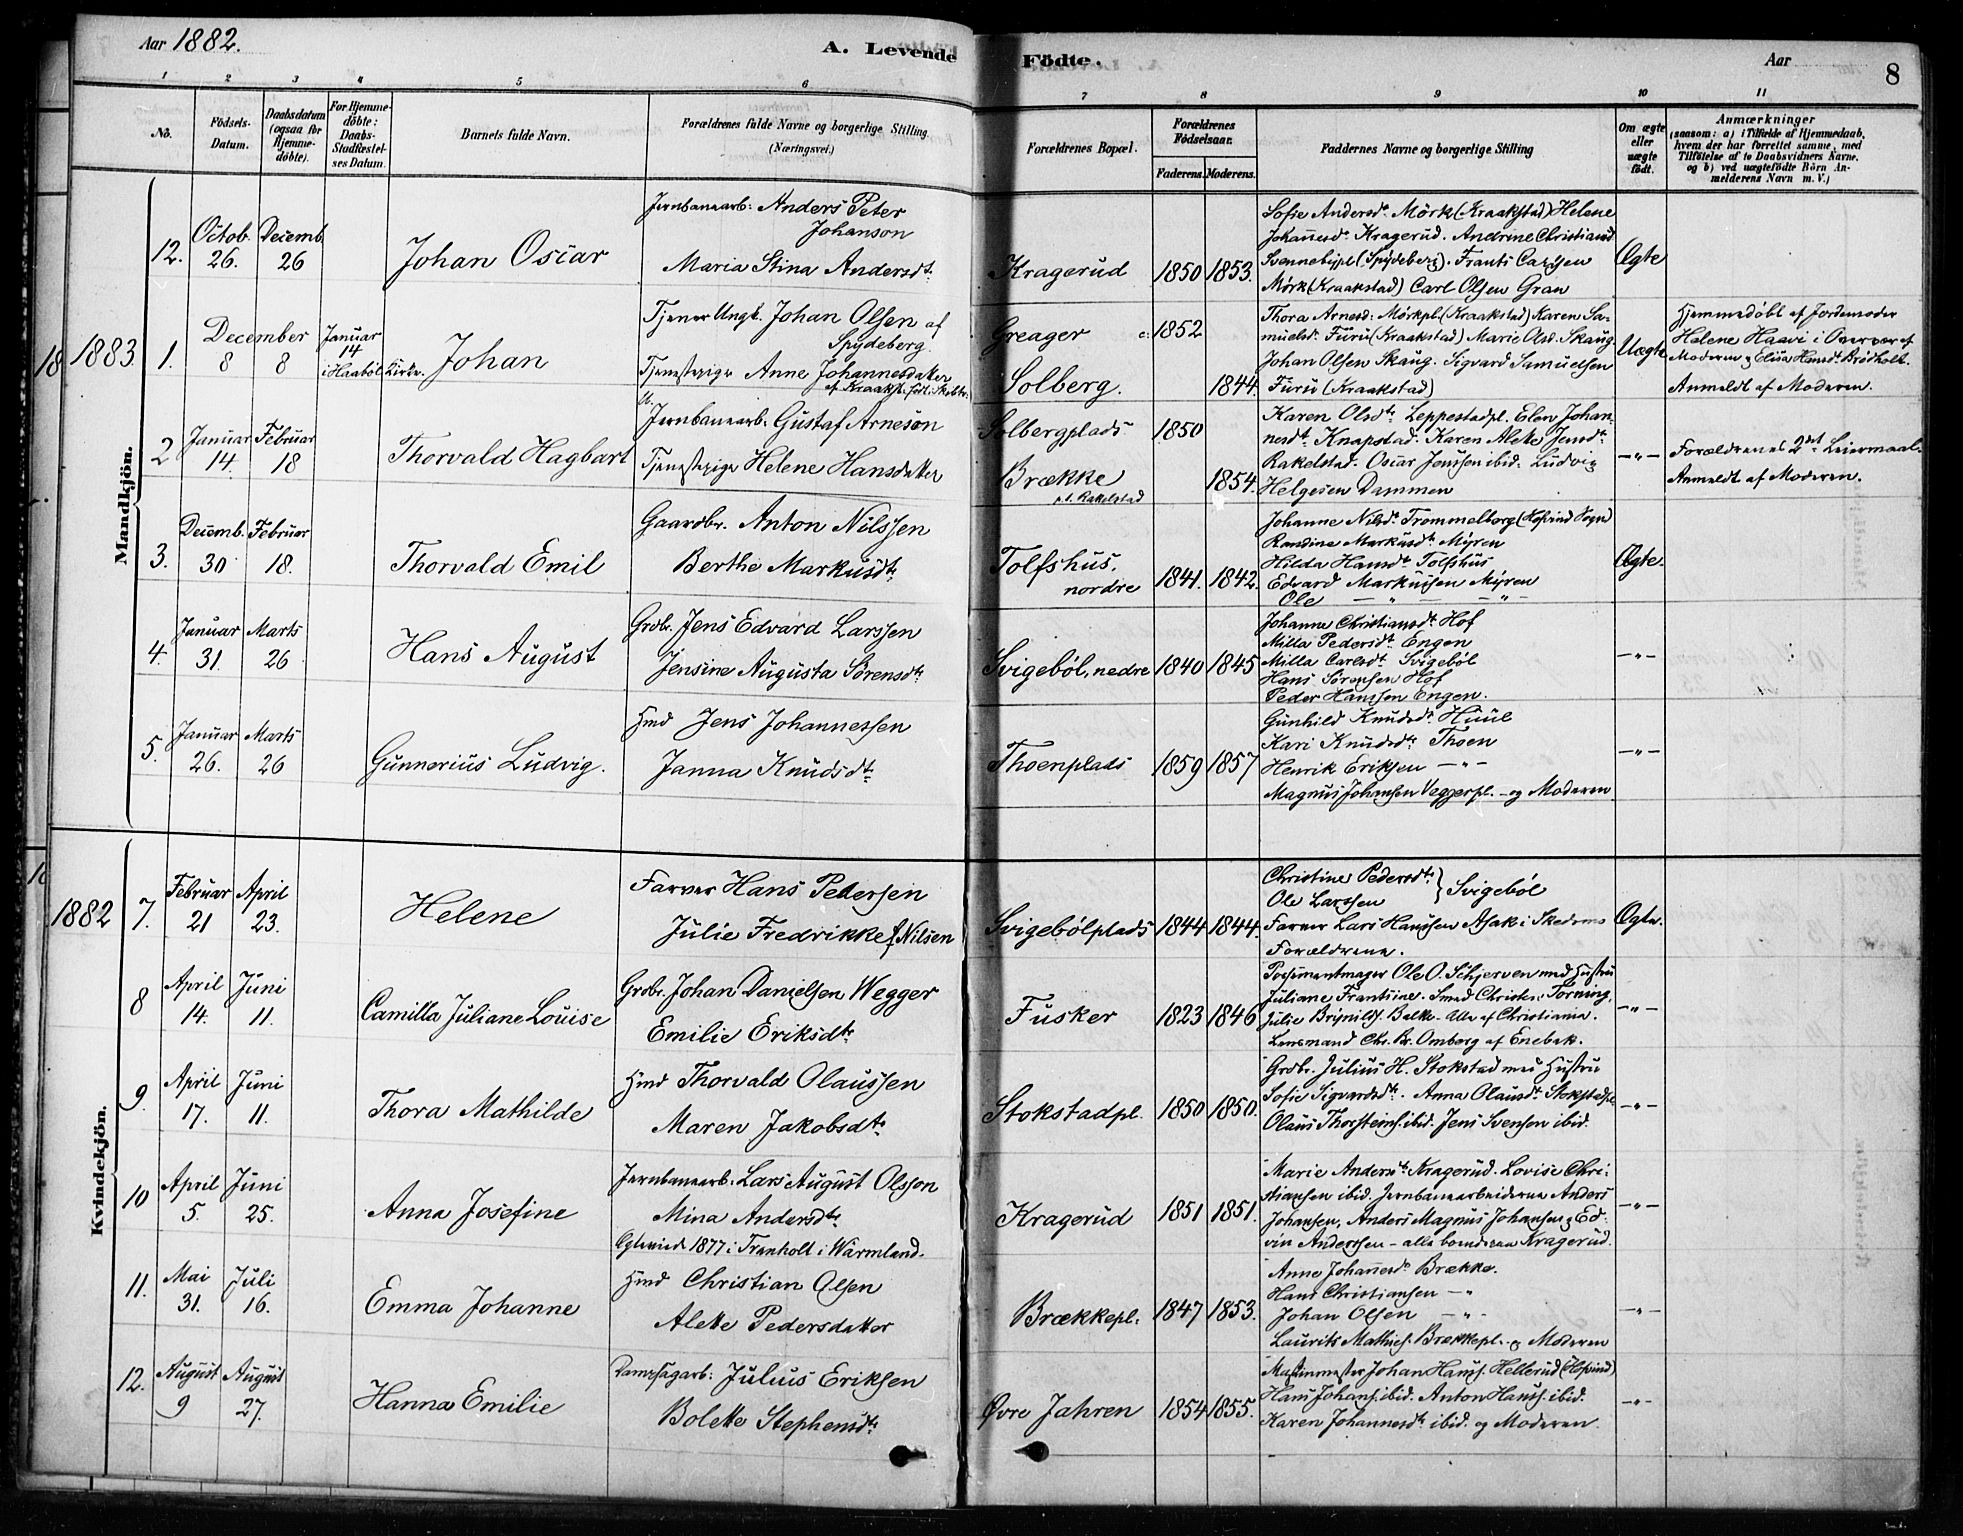 Aar 1882.
A. Levende
Födte.
Aar
8
1 2 3 4 5 6
7 8 9 10 11
No.
Födsels-
Datum.
Daabsdatum
(ogsaa for
Hjemme-
döbte).
For Hjemme-
döbte:
Daabs-
Stadfæstel-
ses Datum.
Barnets fulde Navn.
Forældrenes fulde Navne og borgerlige Stilling
(Næringsvei.)
Forældrenes Bopæl.
Forældrenes
Födselsaar.
Faderens. Moderens.
Faddernes Navne og borgerlige Stilling
Om ægte
eller
uægte
födt.
Anmærkninger
(saasom: a) i Tilfælde af Hjemmedaab,
hvem der har forrettet samme, med
Tilföielse af to Daabsvidners Navne,
og b) ved uægtefödte Börn An-
melderens Navn m. V.)
Mandkjön.
12.
Octob.
26.
Decemb.
26
Johan Oscar
Jernbanearb: Anders Peter
Johanson
Maria Stina Andersdt.
Kragerud
1850 1853.
Sofie Andersdt. Mörk (Kraakstad) Helene
Johannesd. Kragerud. Andrine Christiansd
(Spydeberg). Frants
Mörk (Kraakstad) Carl Olsen Gran
Ægte
1883.
1.
December
8 8
Januar
14
i Haaböl Kirke.
Johan
Tjener Ungk. Johan Olsen af
Spydeberg.
Anne Johannesdatter
Greager
Solberg.
1852
1844
Thora Arnesd: Mörkpl. (Kraakstad) Karen Sa-
muelsd. Furu (Kraakstad) Marie Olsd. Skaug
Johan Olsen Skaug. Sigvard Samuelsen
Furu (Kraakstad)
Uægte
Hjemmedöbt af Jordemoder
Helene Haavi i Overvær af
Moderen & Elisa Hansd. Brödholt.
Anmeldt af Moderen.
2
Januar
14.
Februar
18
Thorvald Hagbart
Jernbanearb: Gustaf Arneson
Helene Hansdatter
Solbergplads
Brække
p.t. Rakelstad
1850
1854.
Karen Olsdt. Leppestadpl. Elen Johan-
nesdt. Knapstad. Karen Alette Jensdt.
Rakelstad. Oscar Jenssen ibid. Ludvig
Helgesen Dammen
— " —
Forældrenes 2det Leiermaal.
Anmeldt af Moderen.
3.
Decemb.
30
Februar
18.
Thorvald Emil
Gaardbr. Anton Nilssen
Berthe Markusdt.
Tolfshus,
nordre
1841. 1842.
Johanne Nilsdt. Trommelborg (Hofvind Sogn)
Randine Markusdt. Myren
Hilda Hansdt. Tolfshus
Edvard Markussen Myren
Ole — " — — " —
Ægte.
4.
Januar
31.
Marts
26
Hans August
Grdbr. Jens Edvard Larssen
Jensine Augusta Sörensdt.
Svigeböl, nedre
1840 1845
Johanne Christiansdt. Hof
Milla Pedersdt. Engen
Milla Carlsdt. Svigeböl
Hans Sörensen Hof
Peder Hanssen Engen.
— " —
5.
Januar
26.
Marts
26
Gunnerius Ludvig.
Hmd Jens Johannessen
Janna Knudsdt.
Thoenplads
1859 1857
Gunhild Knudsdt. Huul
Kari Knudsdt. Thoen
Henrik Eriksen — " —
Magnus Johansen Veggerpl. - og Moderen
— " —
Kvindekjön.
1882
7.
Februar
21
April
23.
Helene
Farver Hans Pedersen
Julie Fredrikke f. Nilsen
Svigebölplads
1844 1844.
Christine Pedersdt.
Ole Larssen } Svigeböl
Farver Lars Hanssen Asak i Skedsmo
Forældrene.
Ægte.
8
April
14.
Juni
11.
Camilla Juliane Louise
Grdbr. Johan Danielsen Wegger
Emilie Eriksdt.
Fusker
1823 1846
Possementmager Ole O. Schjerven med Hustru
Juliane Frantsine. Smed Torning,
Julie Balke - alle af Christiania.
Lensmand Chr. Br. Omberg af Enebak.
— " —
9.
April
17.
Juni
11.
Thora Mathilde
Hmd Thorvald Olaussen
Maren Jakobsdt.
Stokstadpl.
1850 1850.
Grdbr. Julius H. Stokstad med Hustru
Sofie Sigvardsdt. Anna Olausdt. Stokstadpl.
Olaus Thorstens. ibid. Jens Svensen ibid.
— " —
10
April
5.
Juni
25.
Anna Josefine
Jernbanearb. Lars August Olsson
Mina Andersdt.
Ægteviede 1877 i Tranholt i Warmland.
Kragerud
1851 1851.
Marie Andersdt. Kragerud. Lovise Chri-
stiansen ibid. Jernbanearbeiderne Anders
Johansen, Anders Magnus Johansen & Ed-
vin Anderssen - alle boende paa Kragerud.
— " —
11.
Mai
31.
Juli
16.
Emma Johanne
Hmd Christian Olsen
Alette Pedersdatter
Brækkepl.
1847 1853.
Anne Johannesdt. Brække.
Hans Christiansen — "
Johan Olsen — " -
Laurits Mathies. Brækkepl. - og Moderen
— " —
12.
August
9
August
27.
Hanna Emilie
Dampsagarb: Julius Eriksen
Bolette Stephensdt.
Øvre Jahren
1854 1855.
Maskinmester Johan Hans. Hellerud (Hofvind)
Hans Johans. ibid. Anton Hans. ibid.
Karen Johannesdt. ibid. og Moderen.
— " —